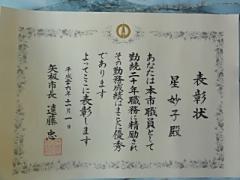 表彰状
星 妙子 殿
あなたは本市職員として
勤続二十年職務に精励され
その勤務成績はまことに優秀
であります
よってここに表彰します
平成二十六年十一月一日
矢板市長 遠藤 忠